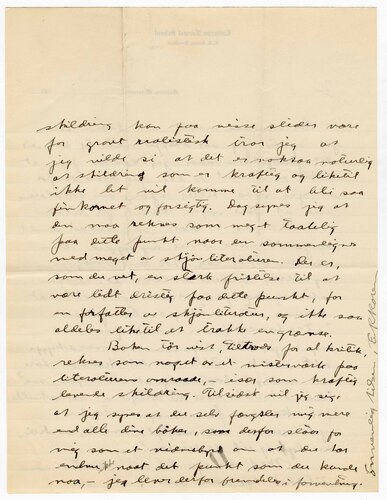 skildring kan paa visse steder være
for grovt realistisk tror jeg at
jeg vilde si at det er naturlig
at skildring som er kraftig og liketil
ikke let vil komme til at bli saa
finkornet og forsigtig. Dog synes jeg at
den maa reknes som meget taalelig
paa dette punkt naar en sammenlignes
med meget av skjønliteraturen. Det er,
som du vet, en sterk fristelse til at
være lidt dristig paa dette punkt, for
en forfatter av skjønliteratur, og ikke saa
aldeles liketil at trække en grænse.
Boken tør vist, tiltrods for al kritik,
reknes som noget av et mesterverk paa
literaturens omraade, — især som kraftig
levende skildring. Tilsidst vil jeg si
at jeg synes at du selv fanger mig mere
end alle dine bøker, som derfor staar for
mig som et vidnesbyrd om at du har
endnu naat det punkt som du kunde
naa, — jeg lever derfor fremdeles i forventning.